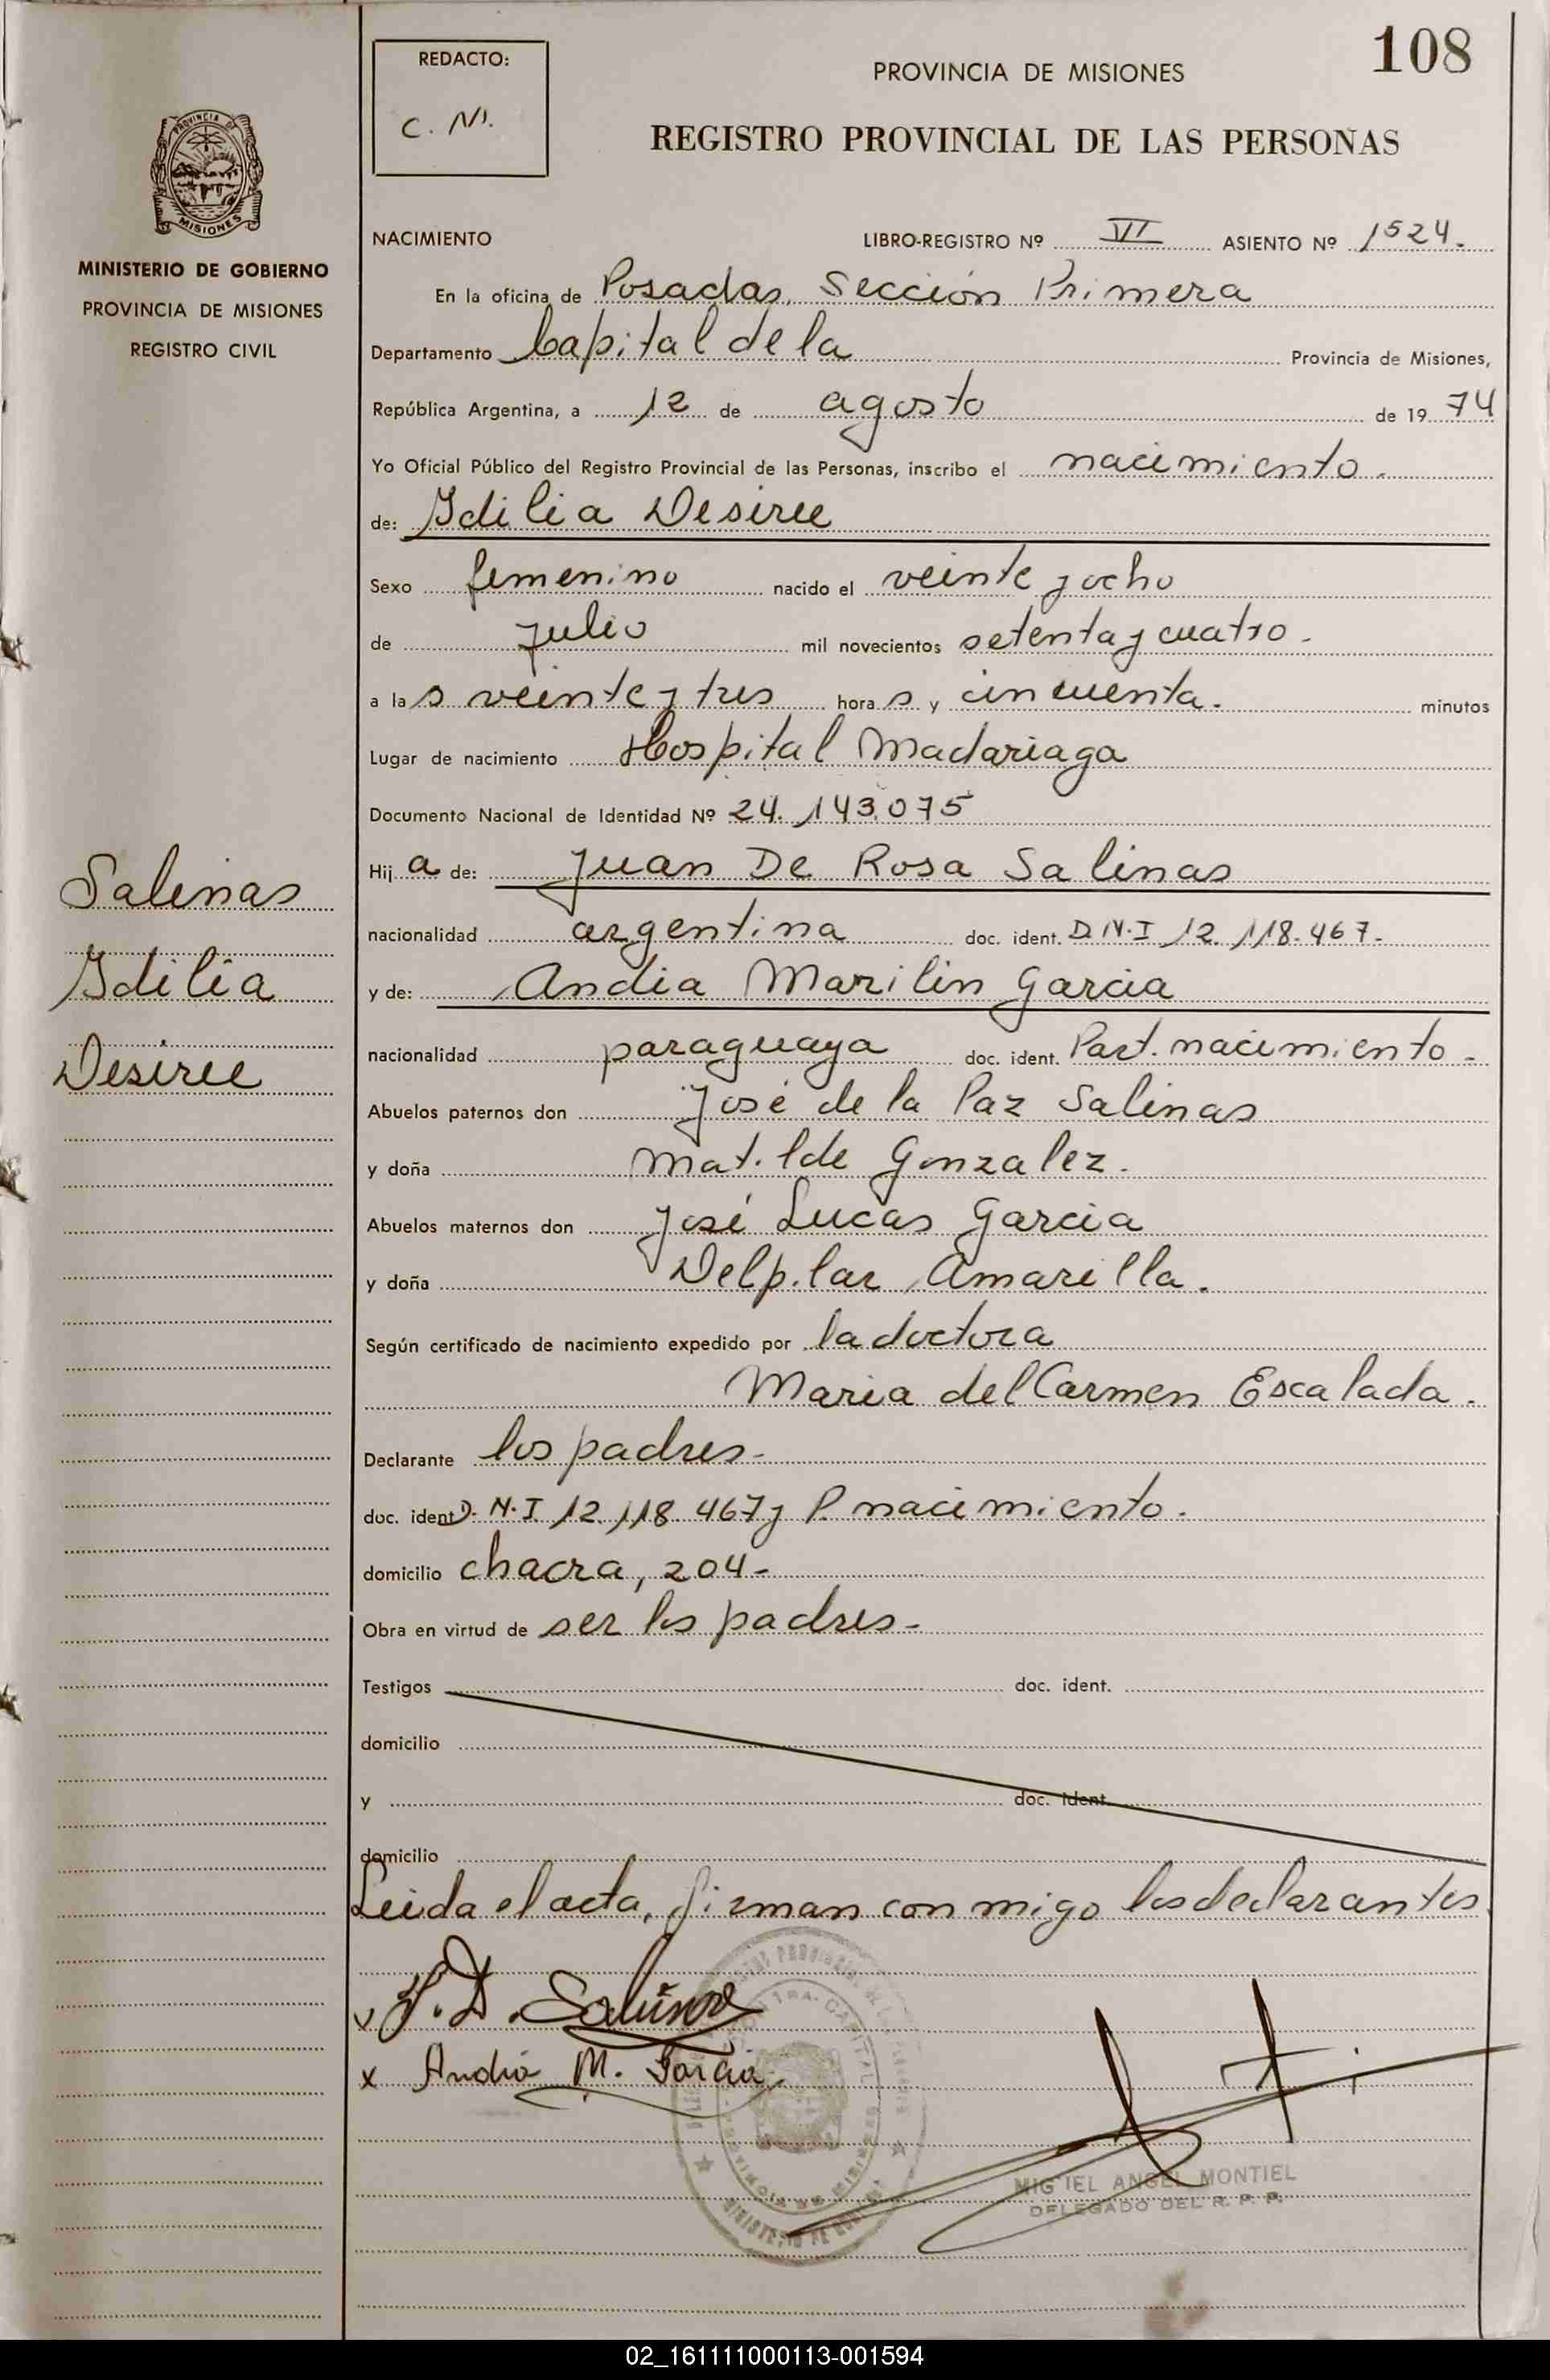 108
REDACTO:
C. M.
PROVINCIA DE MISIONES
REGISTRO PROVINCIAL DE LAS PERSONAS
PROVINCIA DE
MISIONES
MINISTERIO DE GOBIERNO
PROVINCIA DE MISIONES
REGISTRO CIVIL
NACIMIENTO LIBRO-REGISTRO Nº VI ASIENTO Nº 1524.
En la oficina de Posadas, Sección Primera
Departamento Capital de la Provincia de Misiones,
República Argentina, a 12 de agosto de 1974
Yo Oficial Público del Registro Provincial de las Personas, inscribo el nacimiento.
de: Idilia Desiree
Sexo femenino nacido el veinte y ocho
de julio mil novecientos setenta y cuatro.
a las veinte y tres horas y cincuenta. minutos
Lugar de nacimiento Hospital Madariaga
Documento Nacional de Identidad Nº 24.143.075
Hija de: Juan De Rosa Salinas
nacionalidad argentina doc. ident. D.N.I 12.118.467.
y de: Andia Marilin Garcia
nacionalidad paraguaya doc. ident. Part. nacimiento.
Abuelos paternos don José de la Paz Salinas
y doña Matilde Gonzalez.
Abuelos maternos don José Lucas Garcia
y doña Delpilar Amarilla.
Según certificado de nacimiento expedido por la doctora
Maria del Carmen Escalada.
Declarante los padres-
doc. ident D.N.I 12.118.467 y P. nacimiento.
domicilio chacra, 204-
Obra en virtud de ser los padres-
Testigos doc. ident.
domicilio
y doc. ident.
domicilio
Leida el acta, firman conmigo los declarantes
Salinas
Idilia
Desiree
x J. D. Salinas
x Andia M. Garcia
MIGUEL ANGEL MONTIEL
DELEGADO DEL R. P. P.
02_161111000113-001594